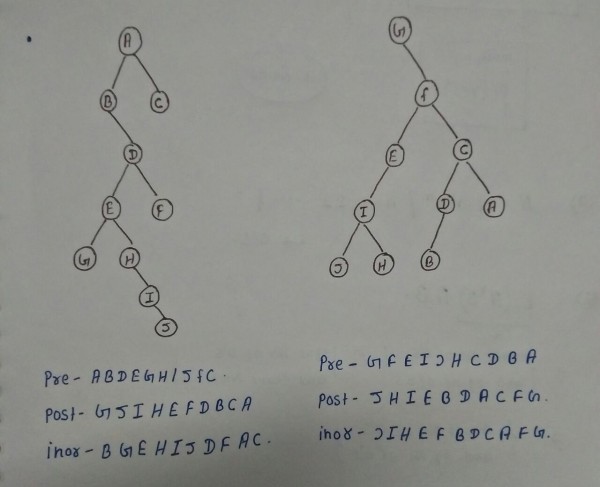 A
B
C
D
E
F
G
H
I
J
Pre - A B D E G H I J f C .
Post - G J I H E F D B C A
inor - B G E H I J D F A C .
G
f
E
C
I
D
A
J
H
B
Pre - G F E I J H C D B A
Post - J H I E B D A C F G .
inor - J I H E F B D C A F G .